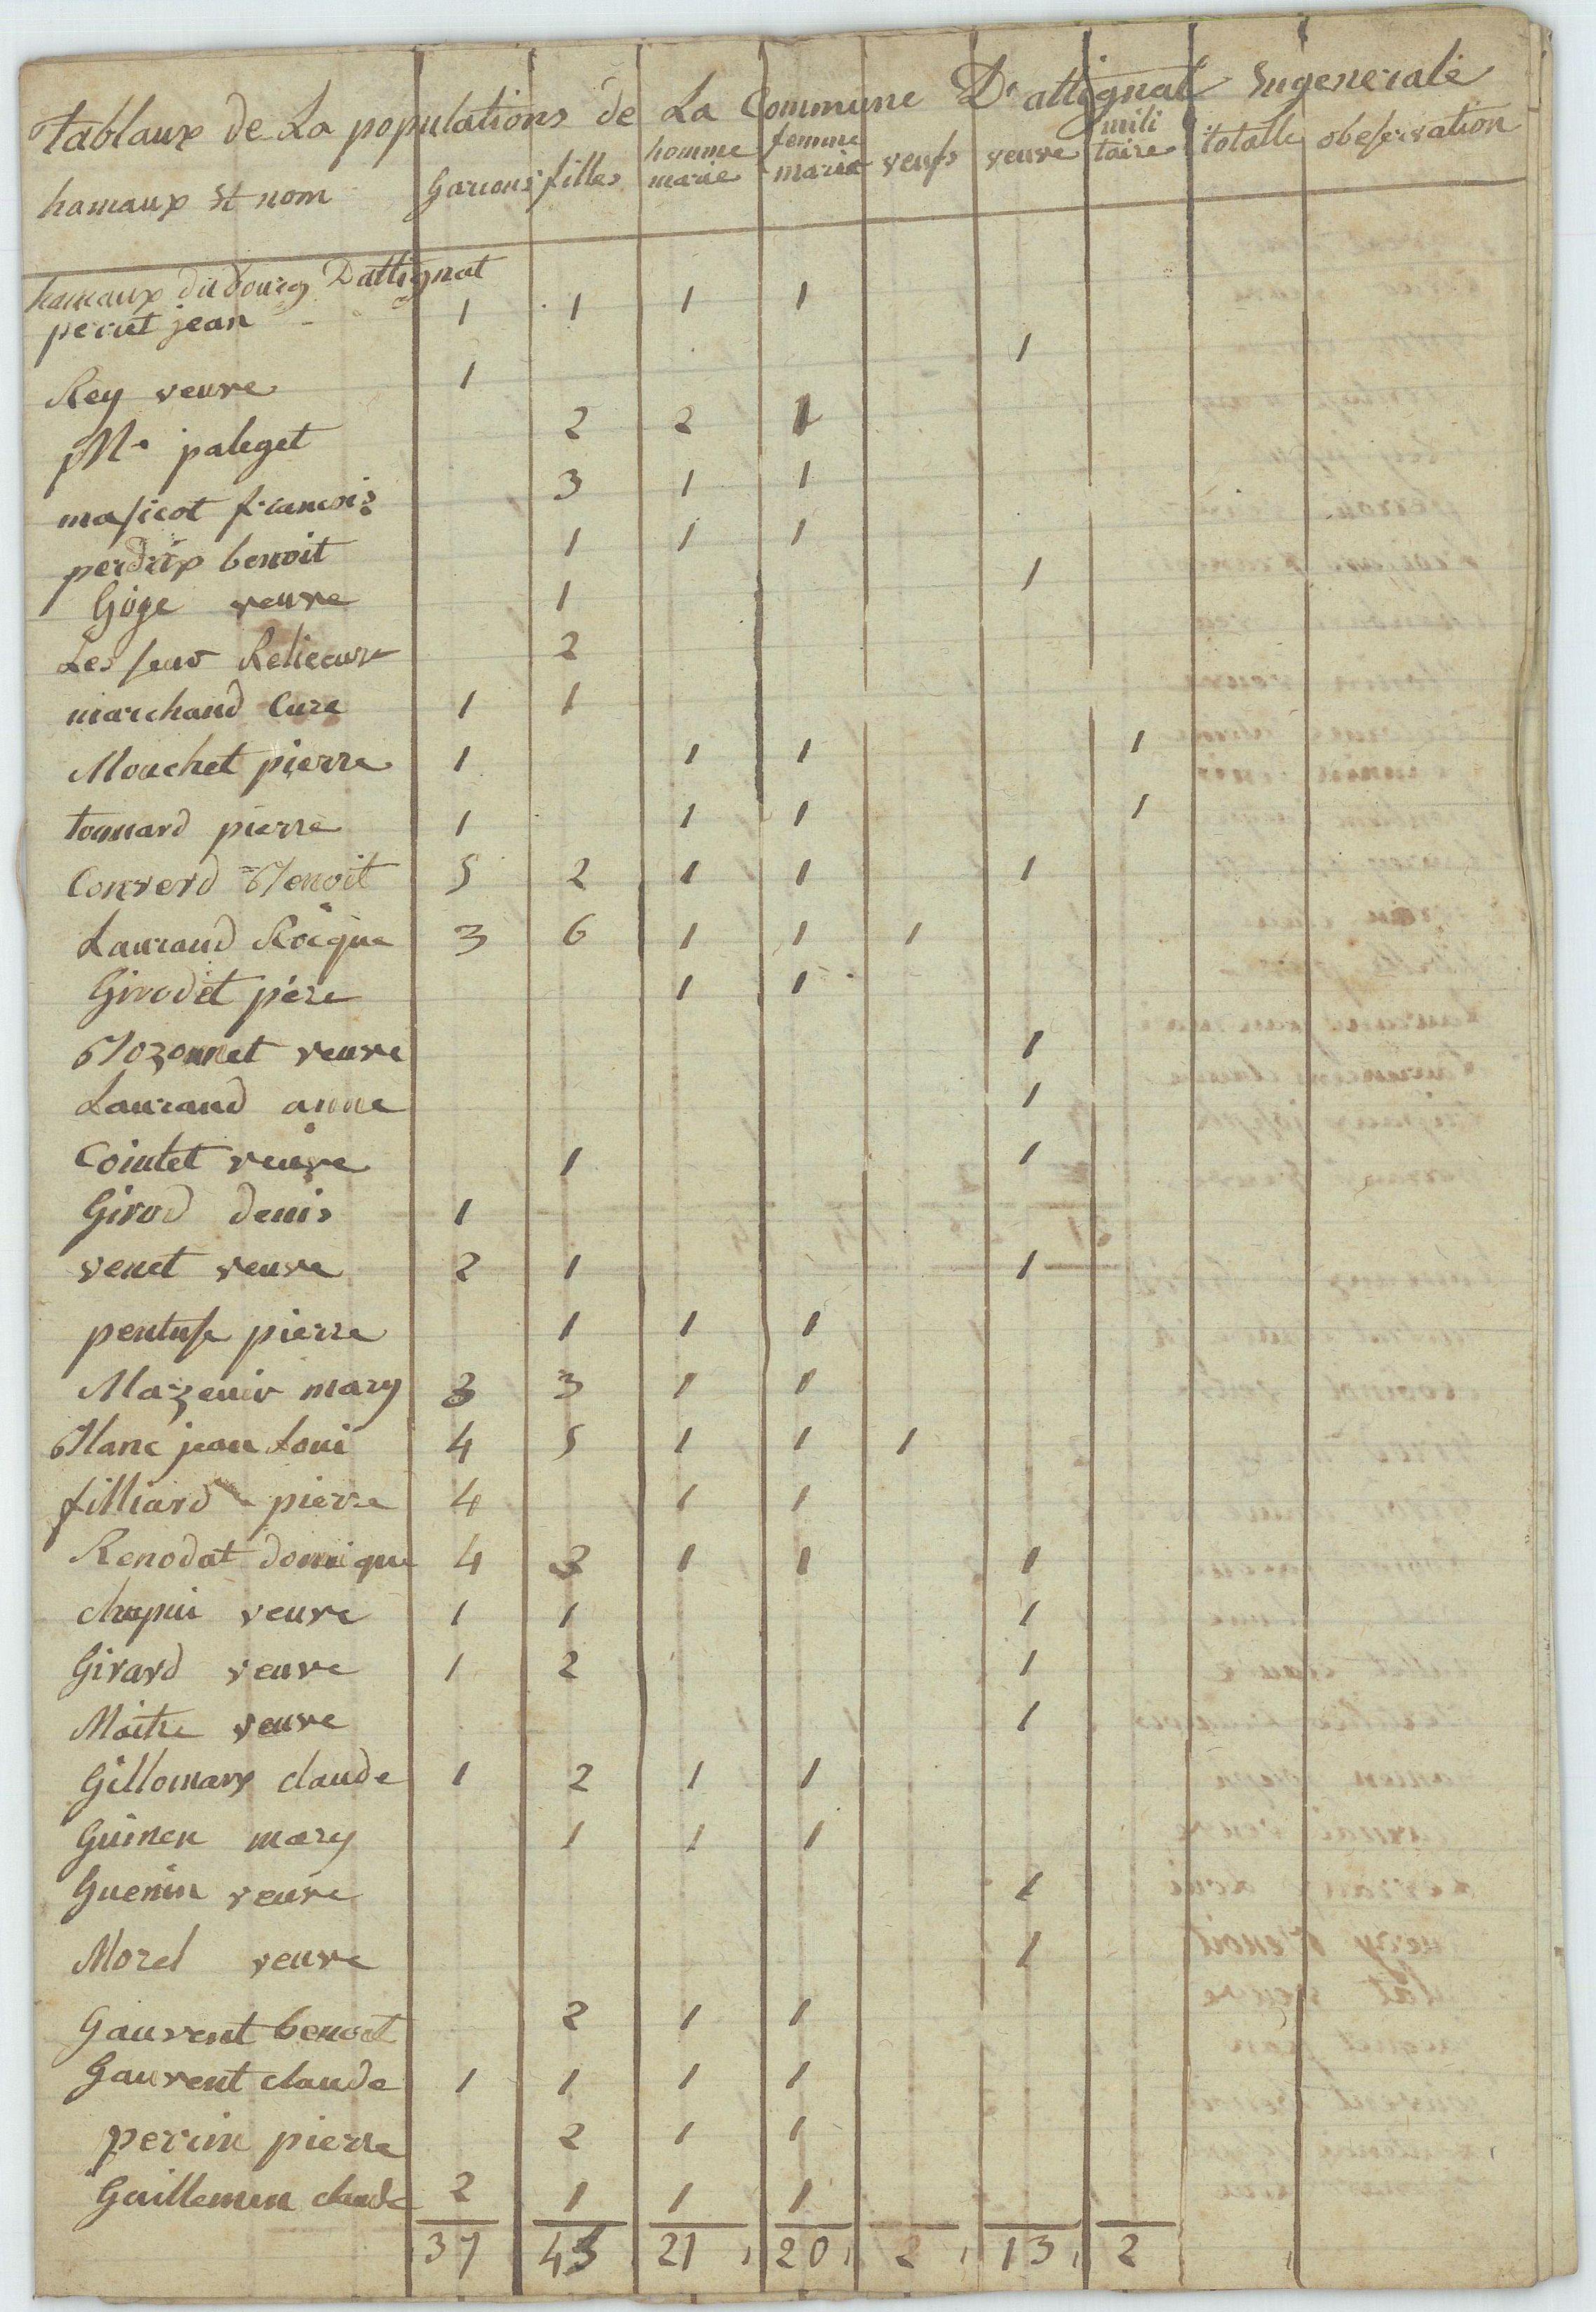 Tablaux de La populations de La Commune D'attignat Engenerale
hamaux et nom Garcons filles homme marie femme marie veufs veuve mili taire totalle obeservation
hameaux du bourg Dattignat
perret jean 1 1 1 1
Rey veuve 1 1
Me paleget 2 2 1
masicot francois 3 1 1
perdrix benoit 1 1 1
Goge veuve 1 1
Les seur 2
marchand Cure 1 1
Mouchet pierre 1 1 1 1
tonnard pierre 1 1 1 1
Converd Benoit 5 2 1 1 1
Laurand Rocque 3 6 1 1 1
Girodet pere 1 1
Bozonnet veuve 1
Laurand anne 1
Cointet veuve 1 1
Girod denis 1
venet veuve 2 1 1
pentuse pierre 1 1 1
Mazenir mary 3 3 1 1
Blanc jean Loui 4 5 1 1 1
filliard pierre 4 1 1
Renodat domique 4 3 1 1 1
chapui veuve 1 1 1
Girard veuve 1 2 1
Maitre veuve 1
Gillomarx claude 1 2 1 1
Guinen mary 1 1 1
Guenin veuve 1
Morel veuve 1
Gauvent benoit 2 1 1
Gauvent claude 1 1 1 1
perrin pierre 2 1 1
Guillemen claude 2 1 1 1
37 43 21 20 2 13 2